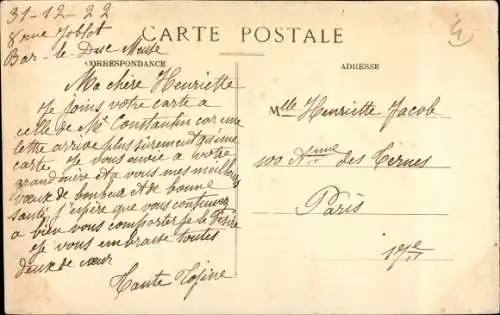 31-12-22
8 rue Joblot
Bar-le-Duc Meuse
CARTE POSTALE
CORRESPONDANCE
ADRESSE
Ma chère Henriette
Je joins votre carte a
celle de Mr Constantin car une
lettre arrive plus surement qu'une
carte. Je vous envie a votre
grand mère et a vous mes meilleurs
vœux de bonheur et de bonne
santé, j'espère que vous continuez
a bien vous comporter je le desire
Je vous embrasse toutes
deux de cœur
Tante
Mlle Henriette Jacob
100 des Ternes
Paris
17e